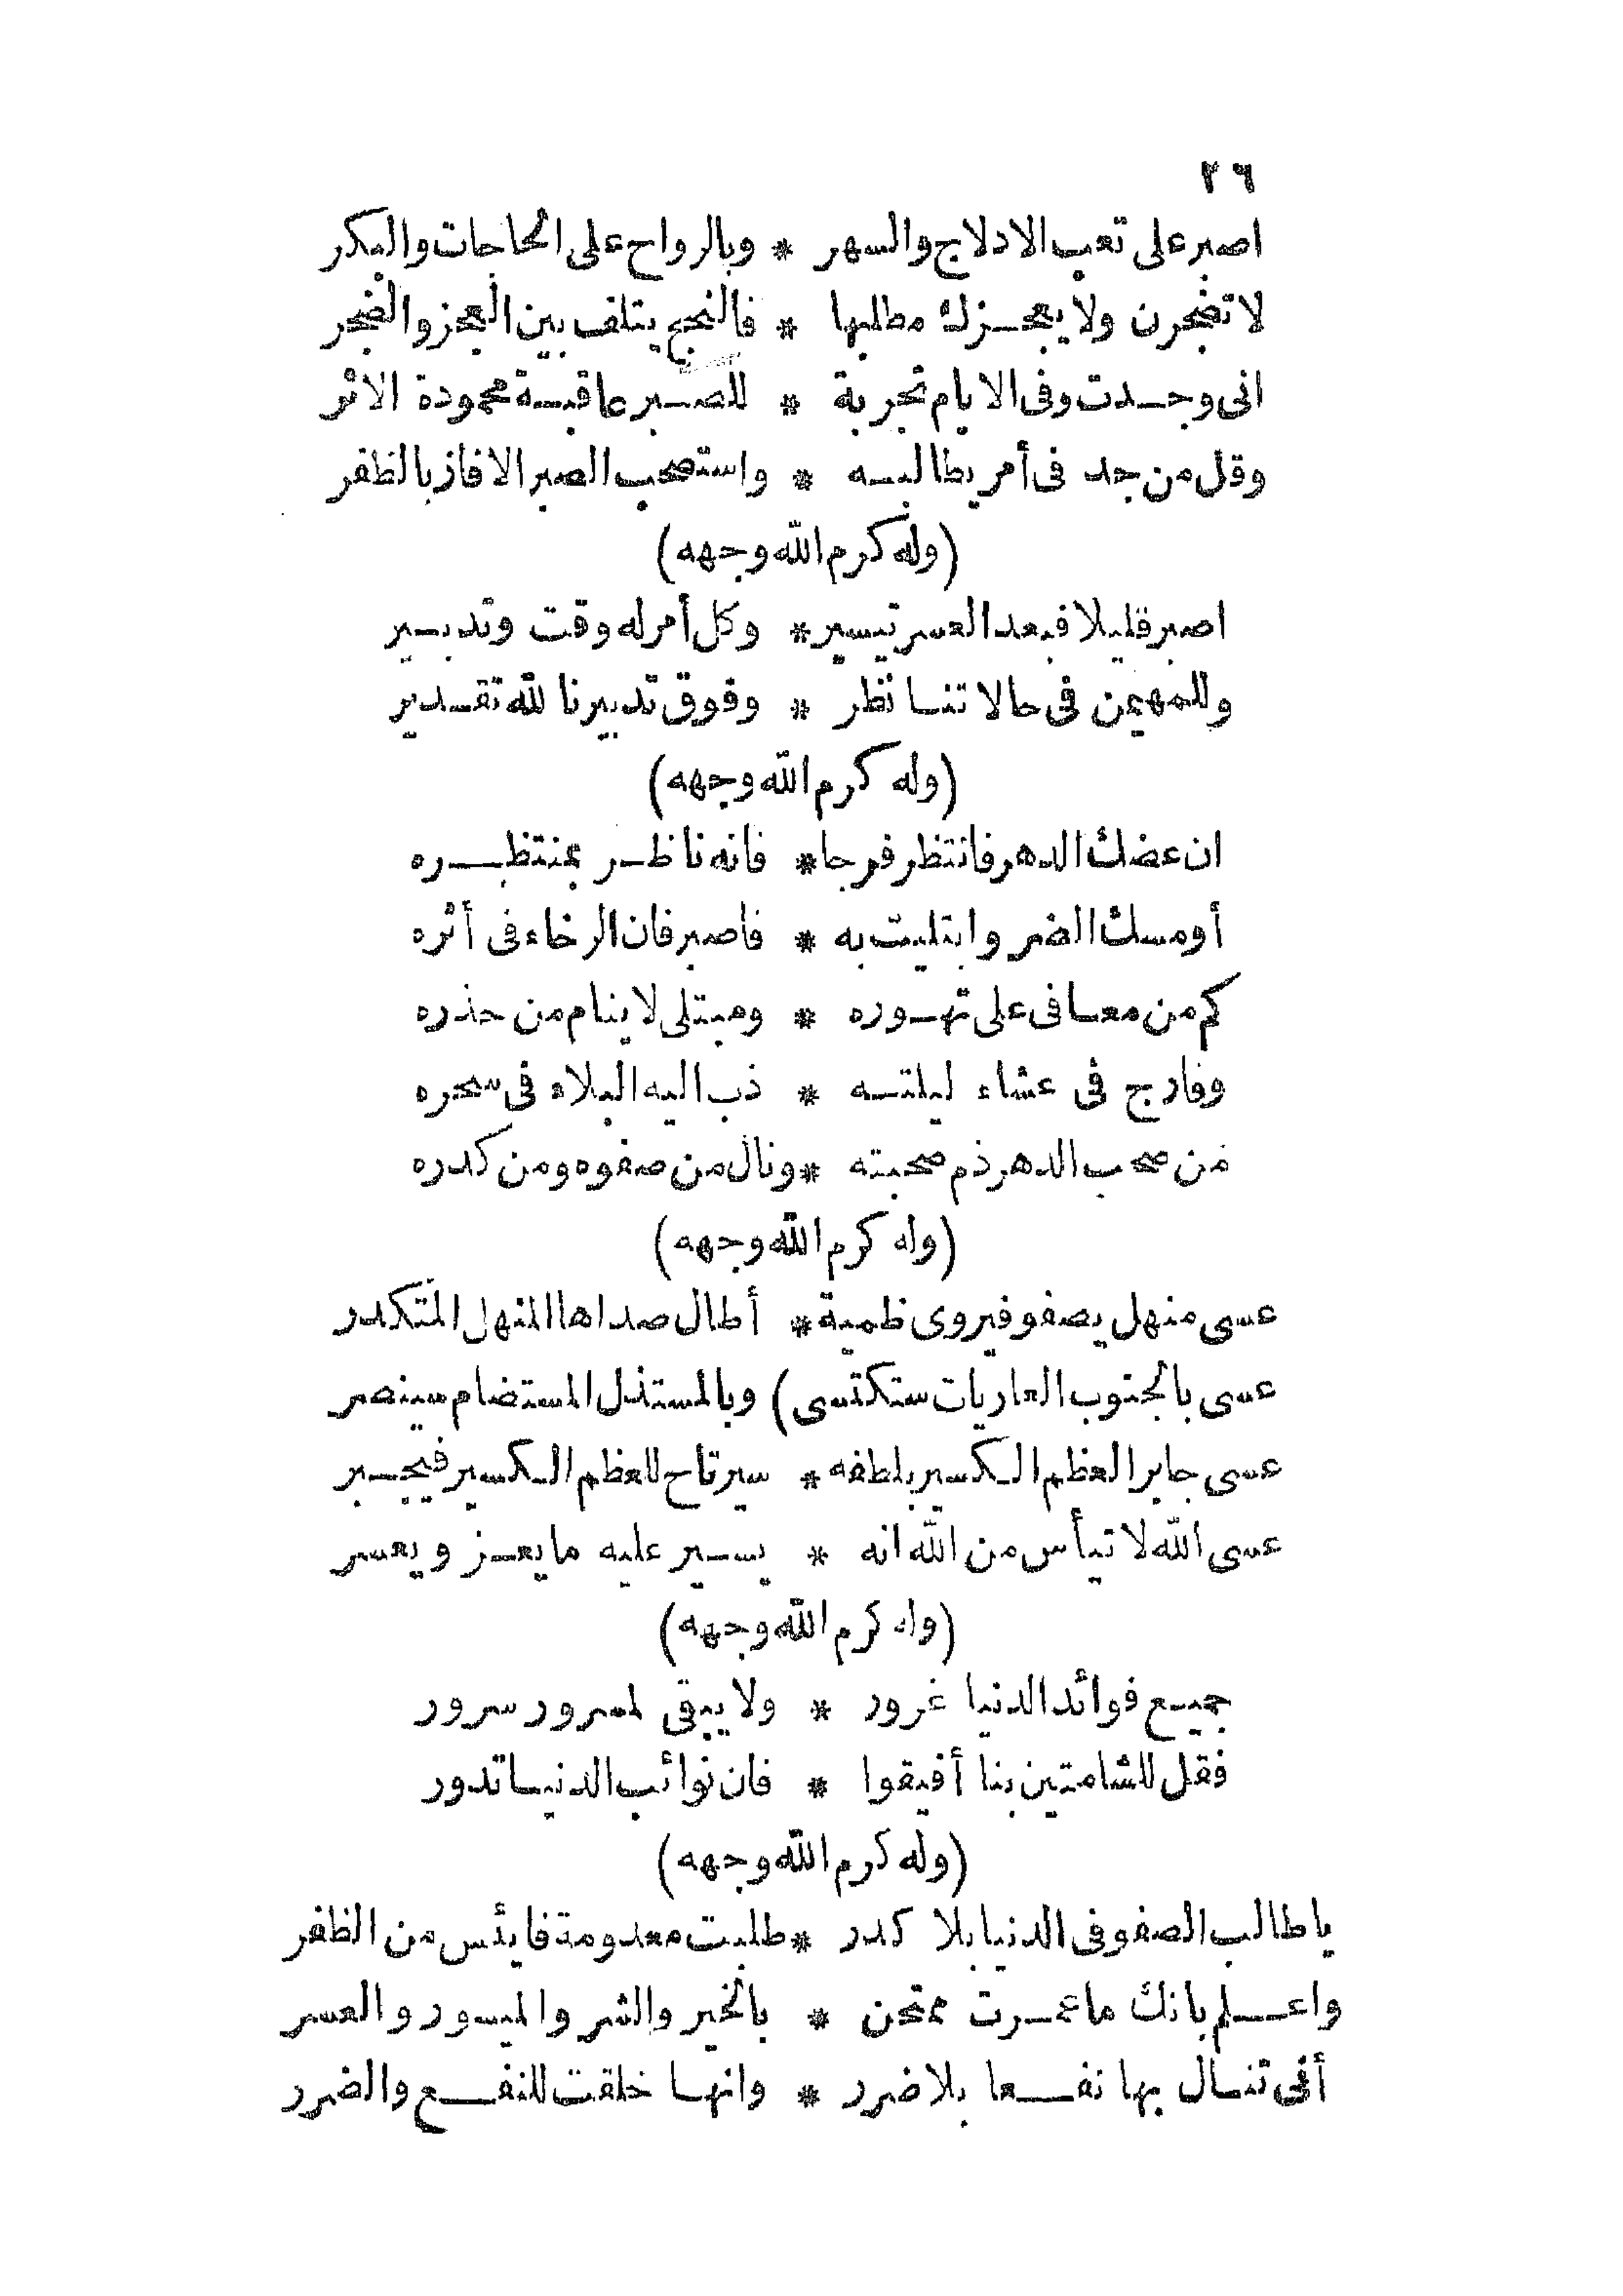 ٢٦
اصبر على تعب الادلاج والسهر * وبالرواح على الحاجات والبكر
لا تضجرن ولا يعجزك مطلبها * فالنجح يتلف بين العجز والضجر
انى وجدت وفى الايام تجربة * للصبر عاقبة محمودة الاثر
وقل من جد فى أمر يطالبه * واستصحب الصبر الا فاز بالظفر
(وله كرم الله وجهه)
اصبر قليلا فبعد العسر تيسير * وكل أمر له وقت وتدبير
وللمهيمن فى حالاتنا نظر * وفوق تدبيرنا لله تقدير
(وله كرم الله وجهه)
ان عضك الدهر فانتظر فرجا * فانه ناظر بمنتظره
أو مسك الضر وابتليت به * فاصبر فان الرخاء فى أثره
كم من معافى على تهوره * ومبتلى لا ينام من حذره
وفارج فى عشاء ليلته * ذب اليه البلاء فى سحره
من صحب الدهر ذم صحبته * ونال من صفوه ومن كدره
(وله كرم الله وجهه)
عسى منهل يصفو فيروى ظمية * أطال صداها المنهل المتكدر
عسى بالجنوب العاريات ستكتسى) وبالمستذل المستضام سينصر
عسى جابر العظم الكسير بلطفه * سيرتاح للعظم الكسير فيجبر
عسى الله لا تيأس من الله انه * يسير عليه ما يعز ويعسر
(وله كرم الله وجهه)
جميع فوائد الدنيا غرور * ولا يبقى لمسرور سرور
فقل للشامتين بنا أفيقوا * فان نوائب الدنيا تدور
(وله كرم الله وجهه)
يا طالب الصفو فى الدنيا بلا كدر * طلبت معدومة فايئس من الظفر
واعلم بانك ما عمرت ممتحن * بالخير والشر والميسور والعسر
أنى تنال بها نفعا بلا ضرر * وانها خلقت للنفع والضرر